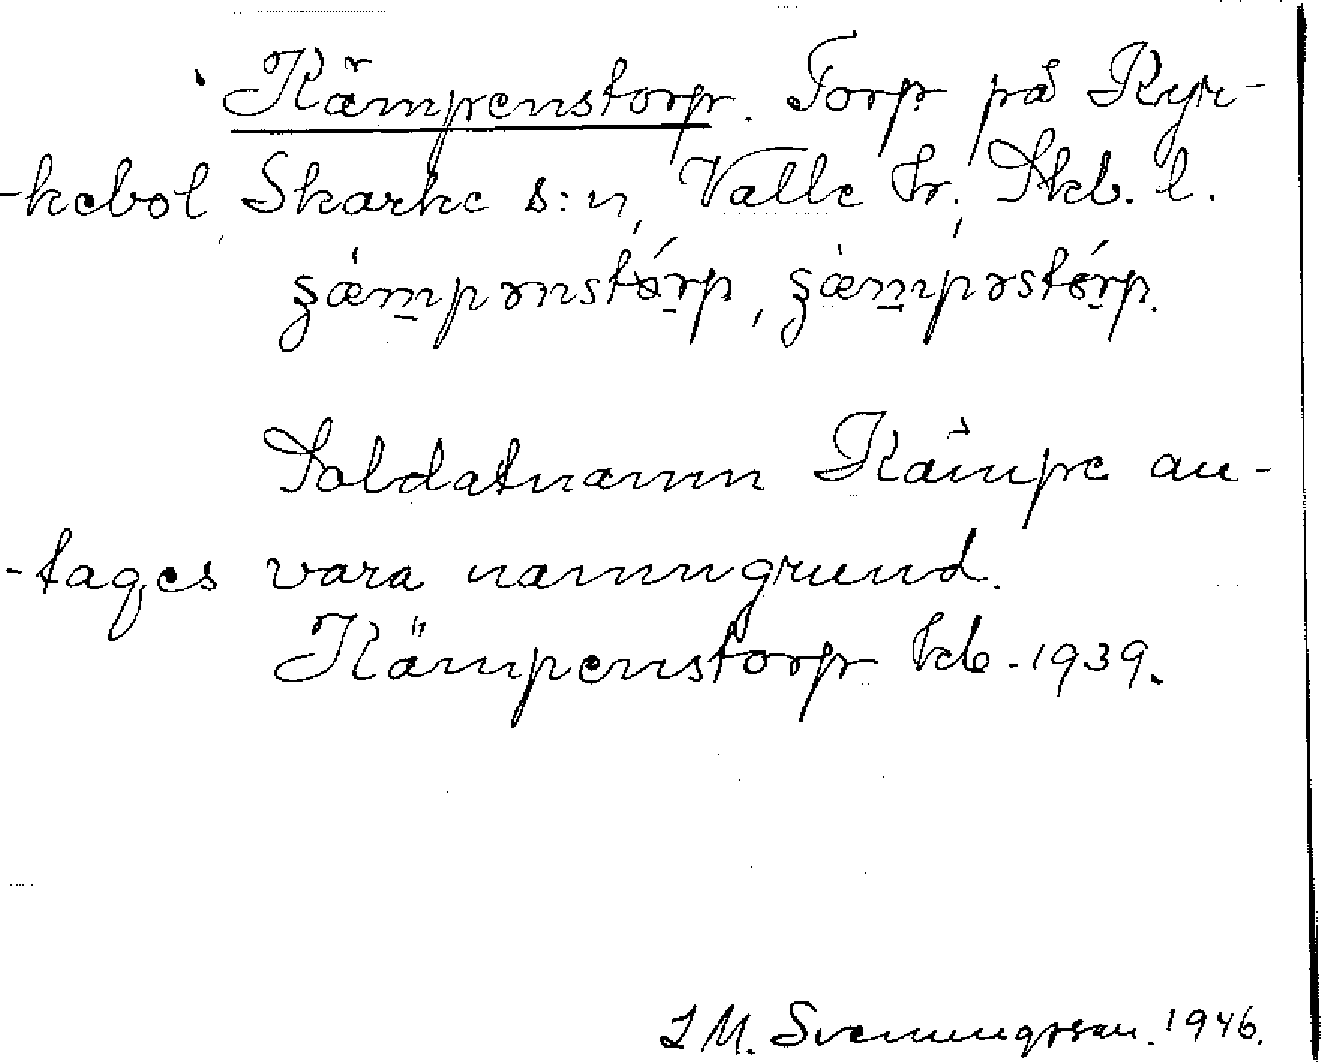 Kämpenstorp. Torp på Ryr-
-kebol, Skarke s:n, Valle hr., Skb. l.
Soldatnamn Kämpe an-
-tages vara namngrund.
Kämpenstorp kb. 1939.
I M. Svenungsson. 1946.